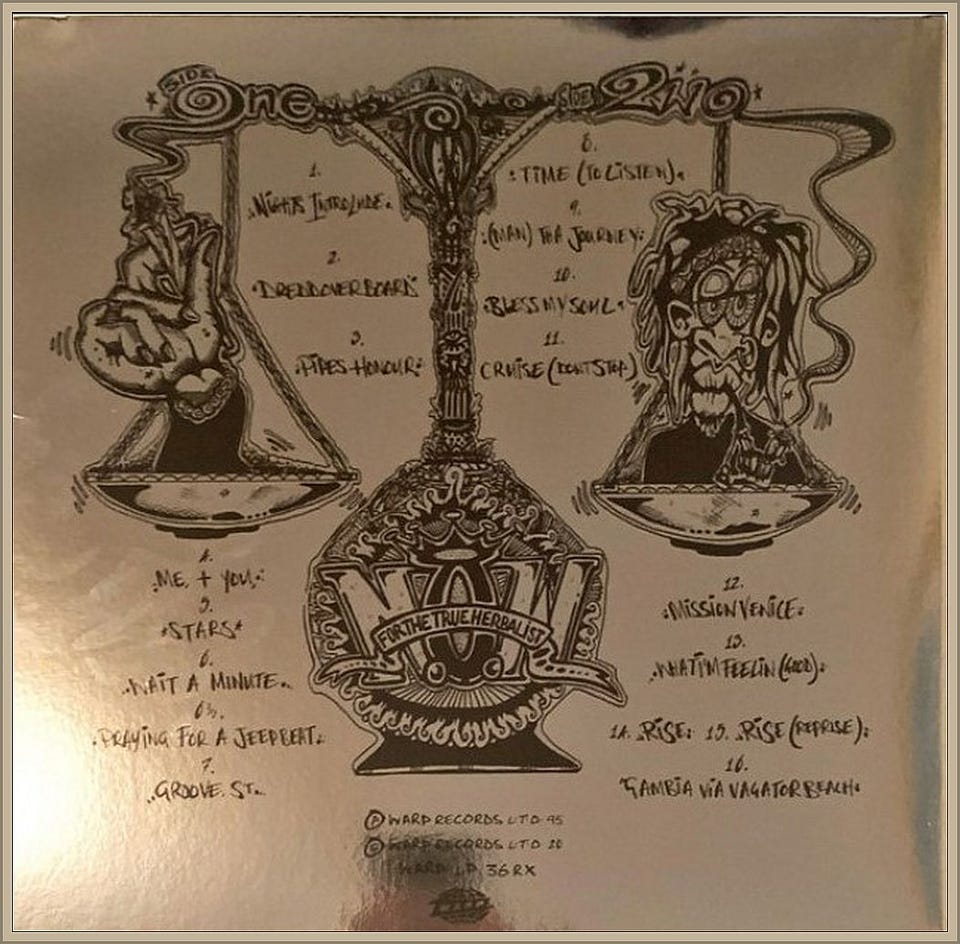 SIDE ONE
1.
NIGHTS INTROLUDE
2.
DREDDOVERBOARD
3.
PIPES HONOUR
4.
ME + YOU
5.
STARS
6.
WAIT A MINUTE
6½.
PRAYING FOR A JEEPBEAT
7.
GROOVE ST.
SIDE 2WO
8.
TIME (TO LISTEN)
9.
(MAN) THA JOURNEY
10.
BLESS MY SOUL
11.
CRUISE (DONT STOP)
12.
MISSION VENICE
13.
WHAT I'M FEELIN (GOOD)
14. RISE 15. RISE (REPRISE)
16.
GAMBIA VIA VAGATOR BEACH
N.O.W.
FOR THE TRUE HERBALIST
Ⓟ WARP RECORDS LTD 95
© WARP RECORDS LTD 20
WARP LP 36RX